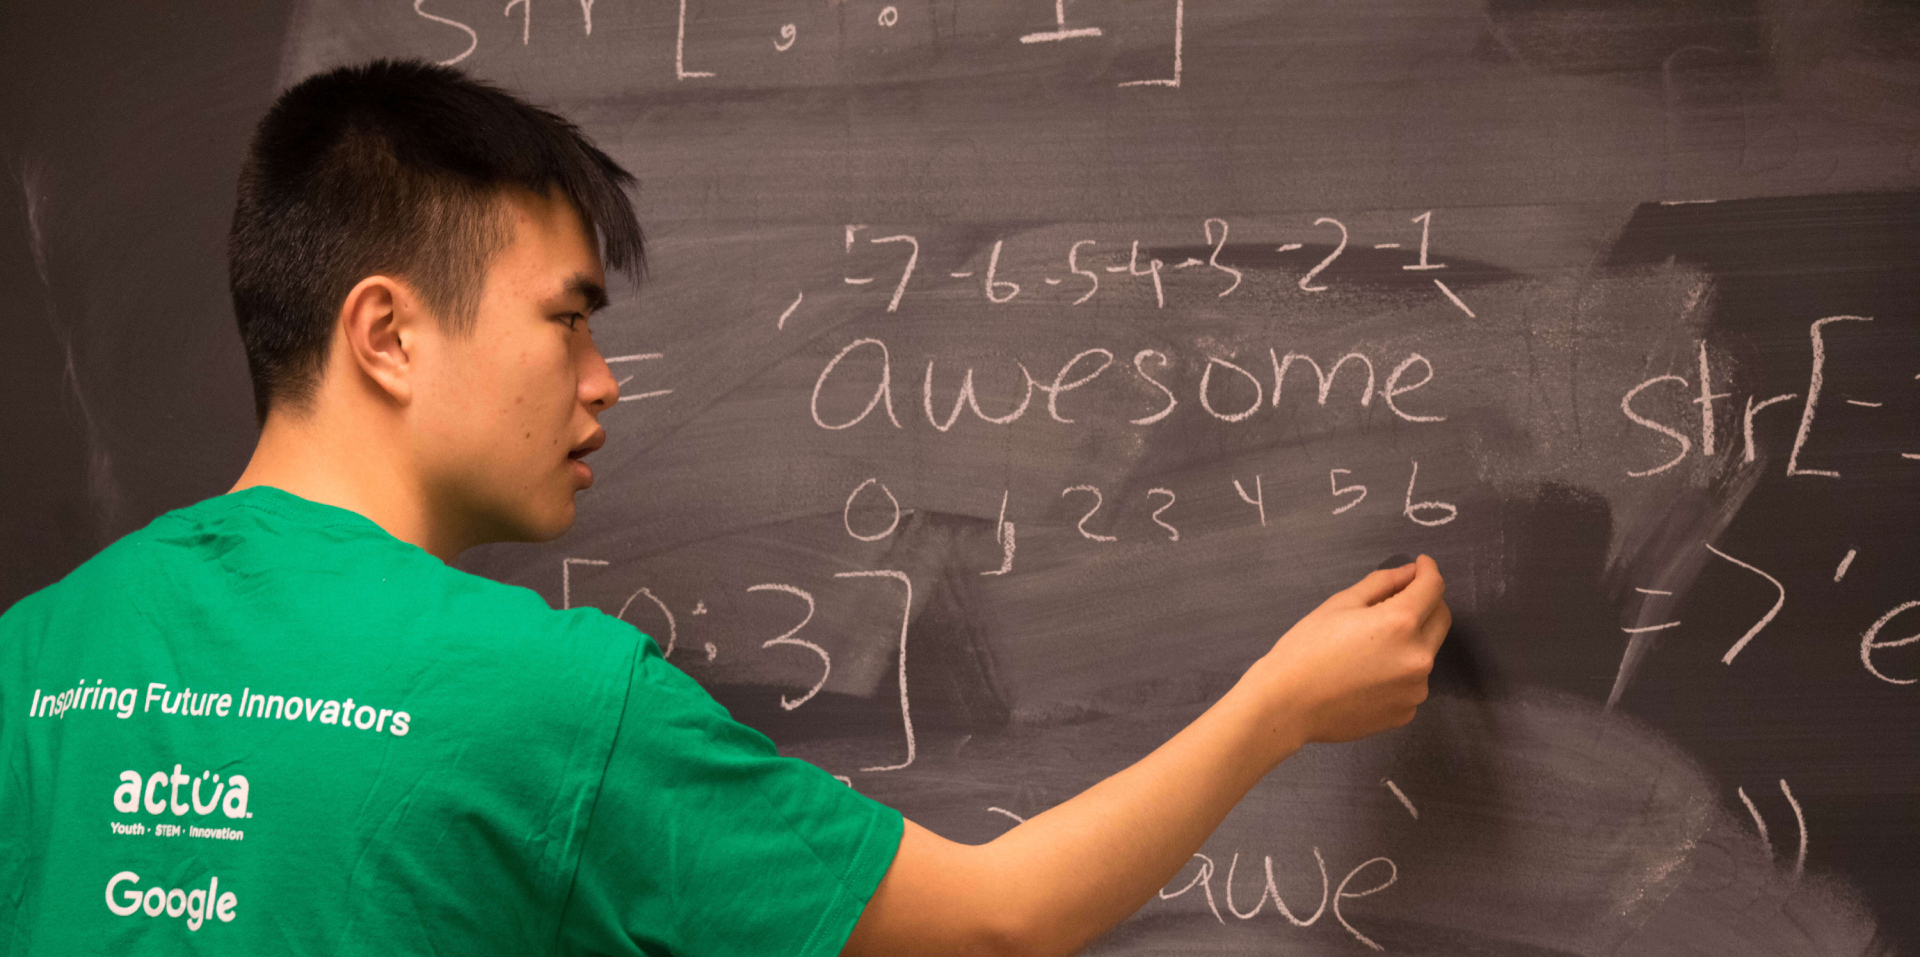 str[::-1]
-7 -6 -5 -4 -3 -2 -1
= 'awesome'
0 1 2 3 4 5 6
[0:3]
'awe'
str[-
=> 'e
Inspiring Future Innovators
actüa
Youth · STEM · Innovation
Google